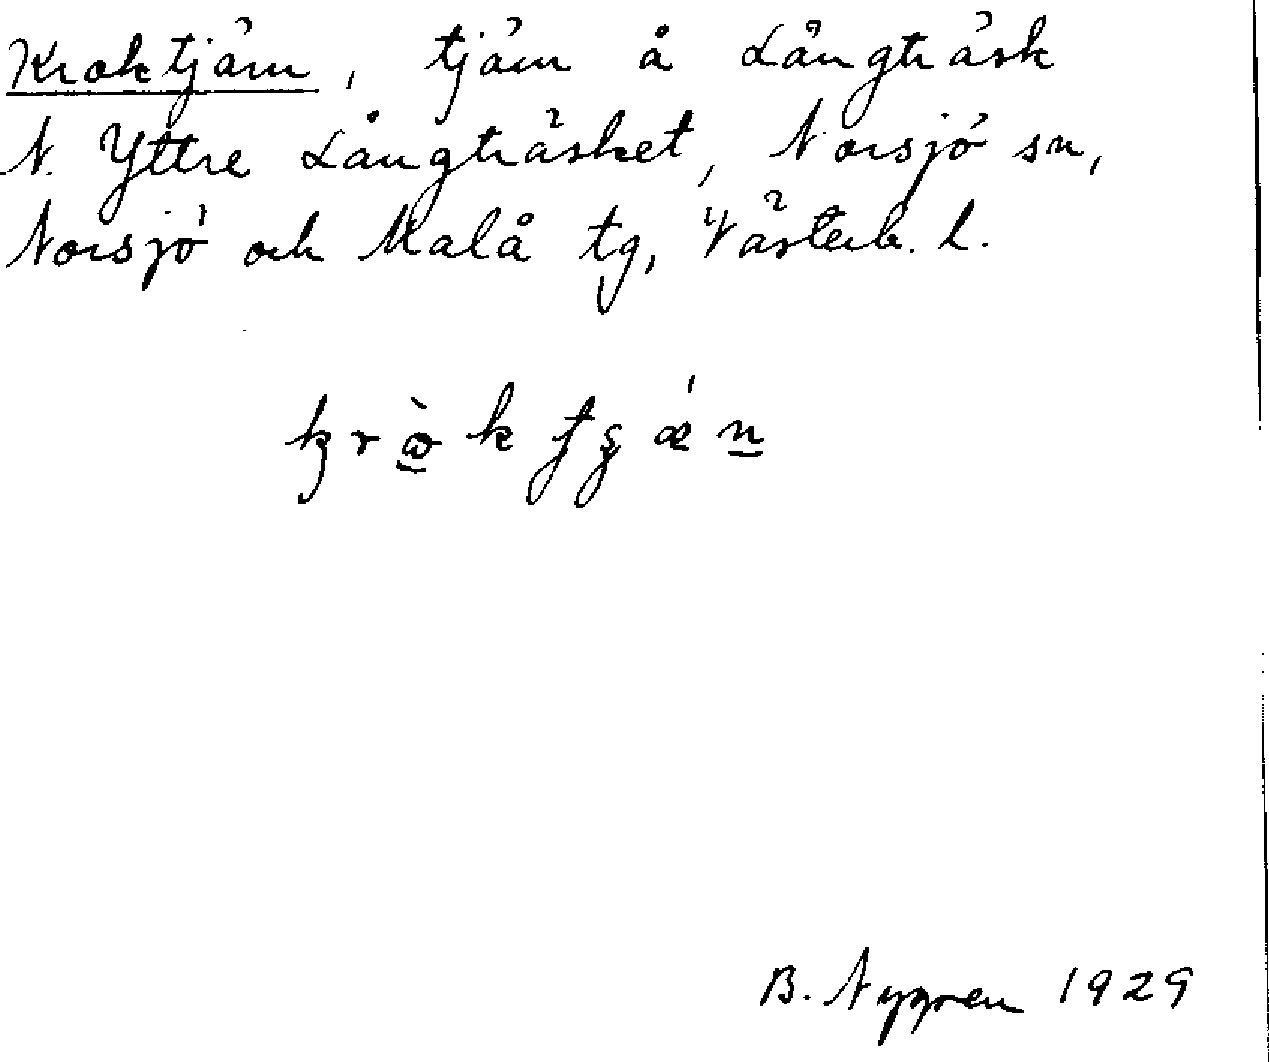 Kroktjärn, tjärn å Långträsk
N. Yttre Långträsket, Norsjö sn,
Norsjö och Malå tg, Västerb. l.
B. Nygren 1929